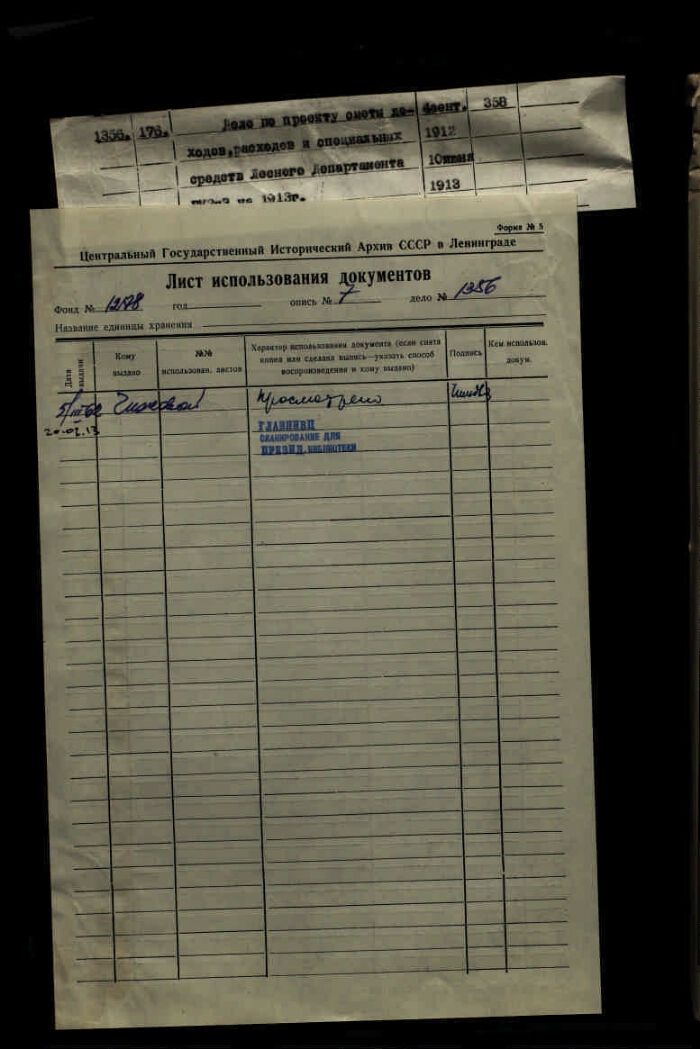 1356. 176. Дело по проекту сметы до- 358
ходов, расходов и специальных 1912
средств Лесного Департамента 10июня
на 1913г. 1913
Форма № 5
Центральный Государственный Исторический Архив СССР в Ленинграде
Лист использования документов
Фонд № 1278 год опись № 7 дело № 1356
Название единицы хранения
Дата выдачи
Кому выдано
№№ использован. листов
Характер использования документа (если снята
копия или сделана выпись—указать способ
воспроизведения и кому выдано)
Подпись
Кем использов. докум.
Просмотрено
20.02.13
ГЛАВНИВЦ
СКАНИРОВАНИЕ ДЛЯ
ПРЕЗИД. БИБЛИОТЕКИ